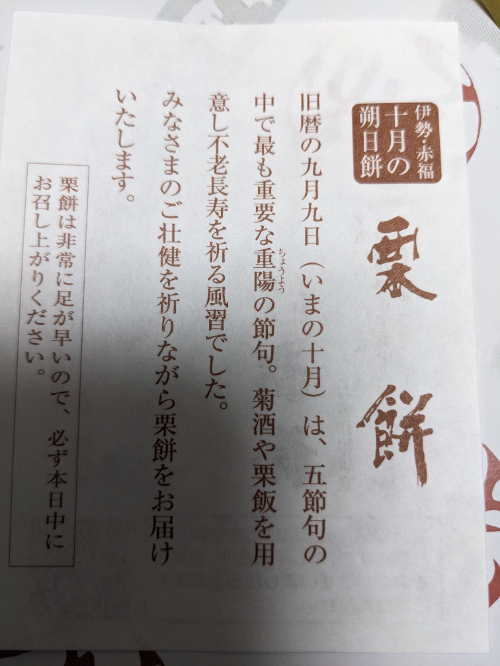 伊勢・赤福
十月の
朔日餅
栗餅
旧暦の九月九日（いまの十月）は、五節句の
中で最も重要な重陽の節句。菊酒や栗飯を用
ちょうよう
意し不老長寿を祈る風習でした。
みなさまのご壮健を祈りながら栗餅をお届け
いたします。
栗餅は非常に足が早いので、必ず本日中に
お召し上がりください。